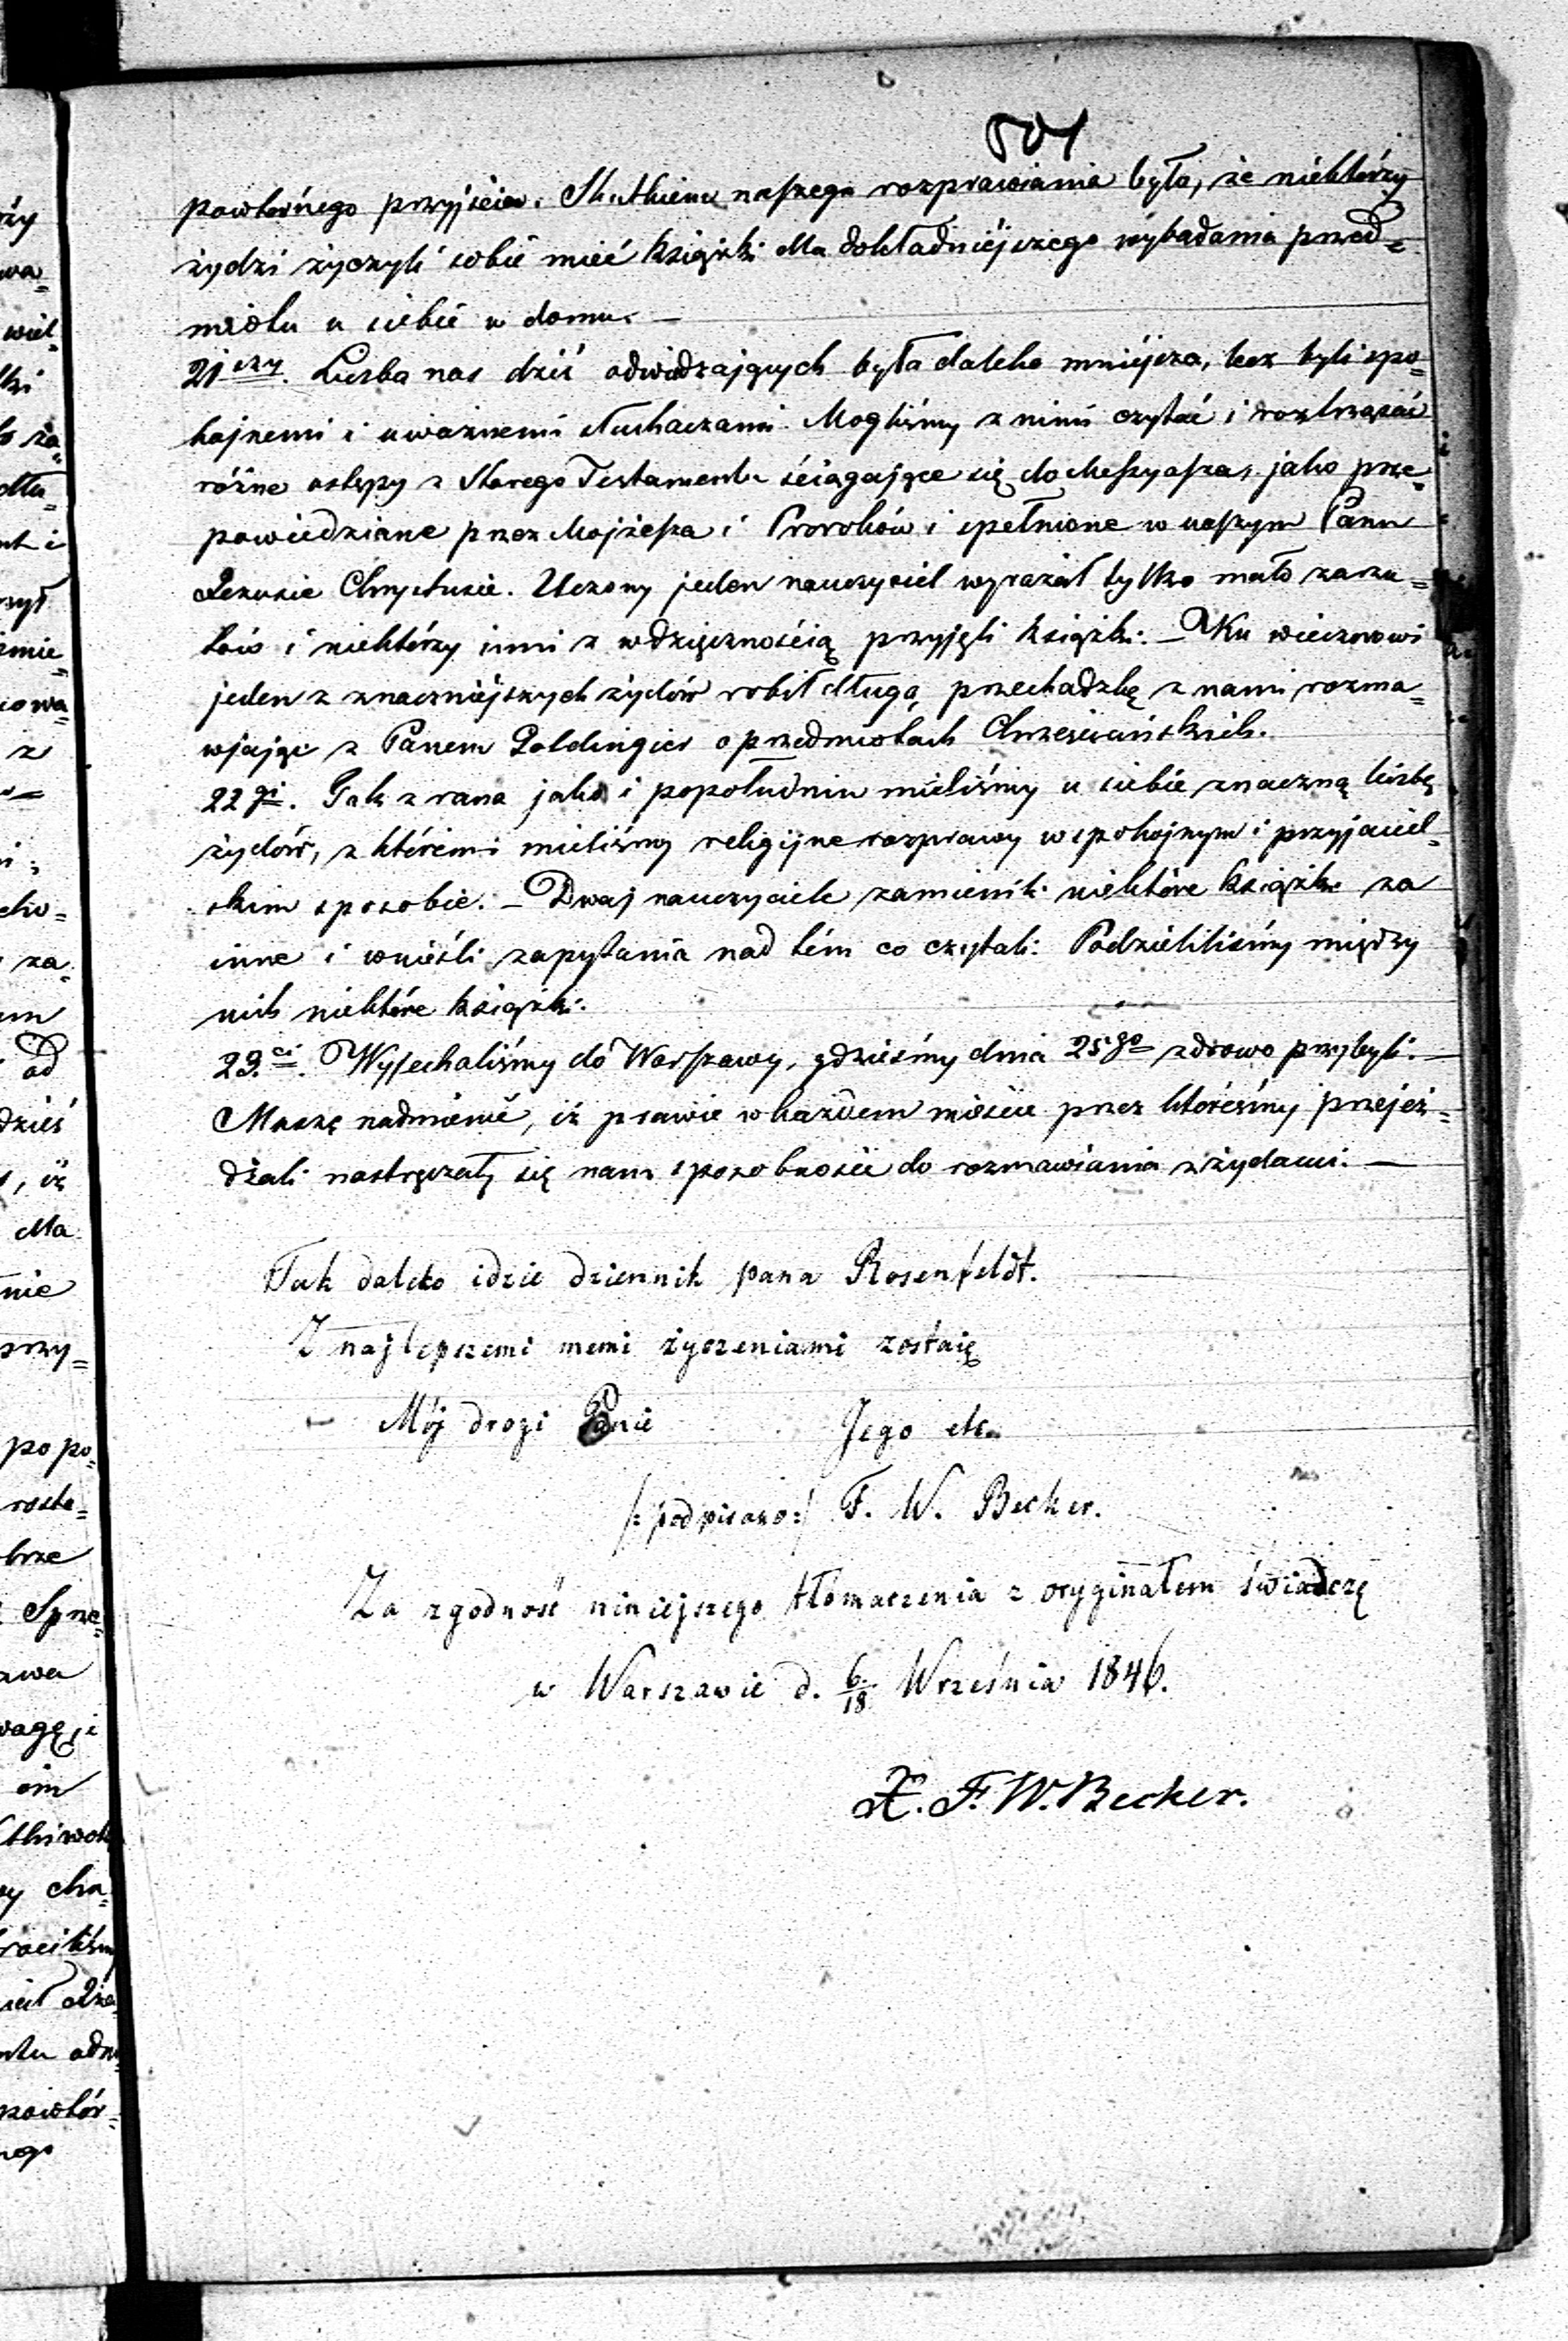 501
powtórnego przyjścia. Skutkiem naszego rozprawiania było, że niektórzy
żydzi życzyli sobie mieć książki dla dokładniejszego wybadania przed=
miotu u siebie w domu. —
21szy. Liczba nas dziś odwiedzających była daleko mniejsza, lecz byli spo=
kojnemi i uważnemi słuchaczami. Mogliśmy z nimi czytać i roztrząsać
różne ustępy z Starego Testamentu ściągające się do Messyasza, jako prze=
powiedziane przez Mojżesza i Proroków i spełnione w naszym Panu
Jezusie Chrystusie. Uczony jeden nauczyciel wyrażał tylko mało zarzu=
tów i niektórzy inni z wdzięcznością przyjęli książki. — Ku wieczorowi
jeden z znaczniejszych żydów robił długą przechadzkę z nami rozma=
wjając z Panem Goldingier o przedmiotach Chrześciańskich.
22gi. Tak z rana jako i popołudniu mieliśmy u siebie znaczną liczbę
żydów, z któremi mieliśmy religijne rozprawy w spokojnym i przyjaciel=
skim sposobie. — Dwaj nauczyciele zamienili niektóre książki za
inne i wnieśli zapytania nad tém co czytali. Podzieliliśmy między
nich niektóre książki.
23ci. Wyjechaliśmy do Warszawy, gdzieśmy dnia 25go zdrowo przybyli. —
Muszę nadmienić, iż prawie w każdem mieście przez któreśmy przejeż=
dżali nastręczały się nam sposobności do rozmawiania z żydami. —
Tak daleko idzie dziennik pana Rosenfeldt.
Z najlepszemi memi życzeniami zostaię
Mój drogi Panie Jego etc.
/: podpisano :/ F. W. Becker.
Za zgodność niniejszego tłomaczenia z oryginałem świadczę
w Warszawie d. 6/18 Września 1846.
X. F. W. Becker.